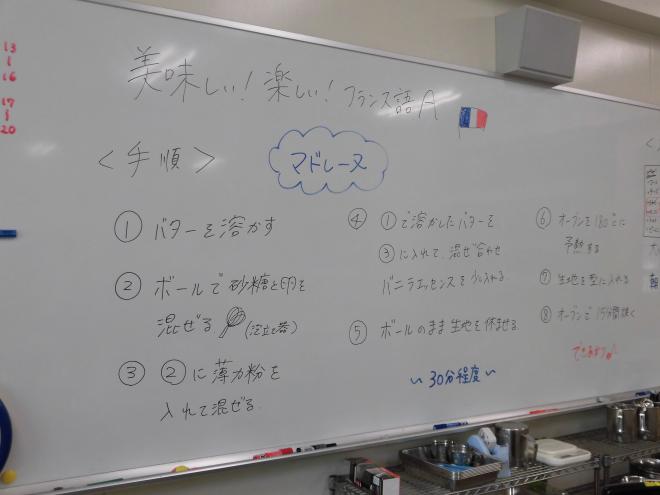 美味しい!楽しい!フランス語A
<手順>
マドレーヌ
① バターを溶かす
② ボールで砂糖と卵を
混ぜる (泡立て器)
③ ②に薄力粉を
入れて混ぜる.
④ ①で溶かしたバターを
③に入れて、混ぜ合わせ
バニラエッセンスを少々入れる.
⑤ ボールのまま生地を休ませる.
~30分程度~
⑥ オーブンを180℃に
予熱する
⑦ 生地を型に入れる
⑧ オーブンで15分間焼く
できあがり♪
13
16
17
20